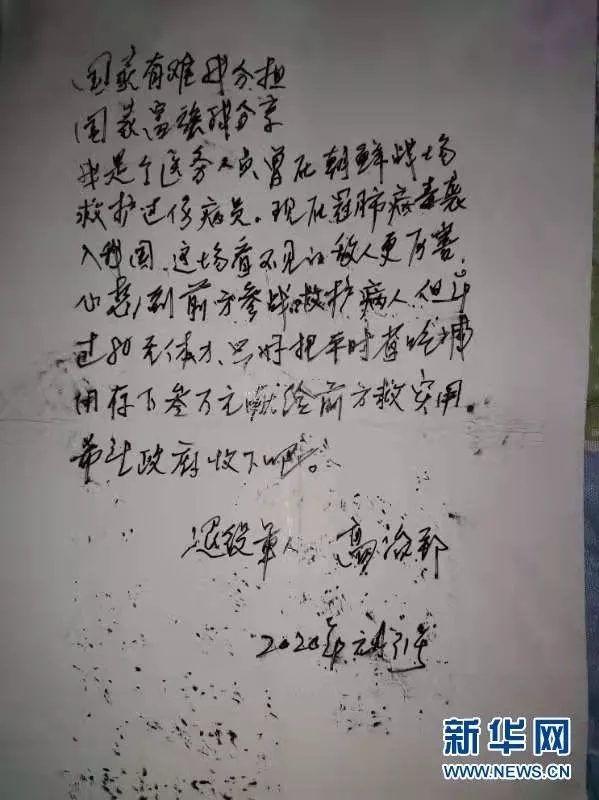 国家有难我分担
国家富强我分享
我是个医务人员曾在朝鲜战场
救护过伤病员。现在冠肺病毒袭
入我国,这场看不见的敌人更厉害,
心想到前方参战救护病人但年
过80无体力、只好把平时省吃
用存下叁万元献给前方救实用。
希望政府收下吧。
退役军人 高治
2020年元月31号
新华网
WWW.NEWS.CN